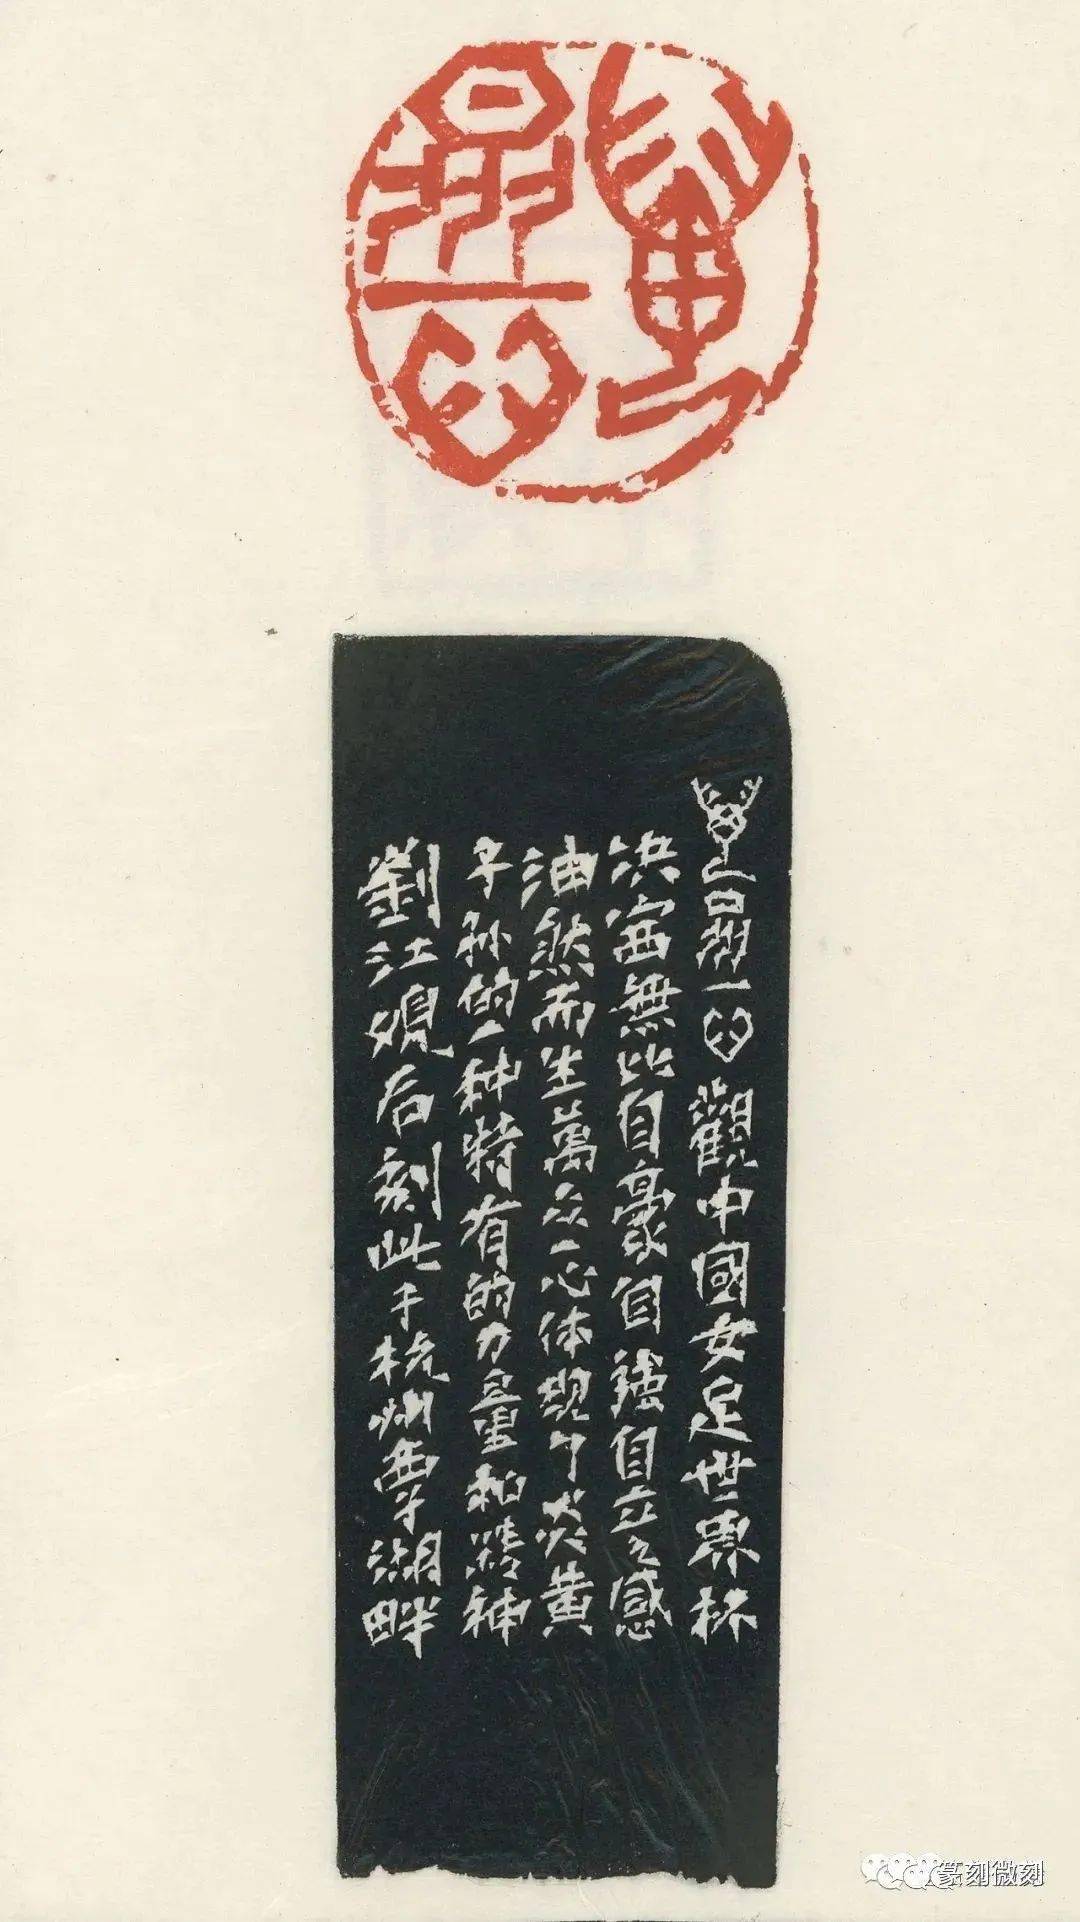 萬眾一心
萬眾一心觀中國女足世界杯
决赛無比自豪自強自立之感
油然而生萬众一心体現了炎黄
子孙的一种特有的力量和精神
劉江覌后刻此于杭州西子湖畔
篆刻微刻